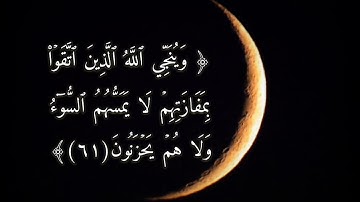 ﴿ وَيُنَجِّي ٱللَّهُ ٱلَّذِينَ ٱتَّقَوْا۟
بِمَفَازَتِهِمْ لَا يَمَسُّهُمُ ٱلسُّوٓءُ
وَلَا هُمْ يَحْزَنُونَ (٦١) ﴾